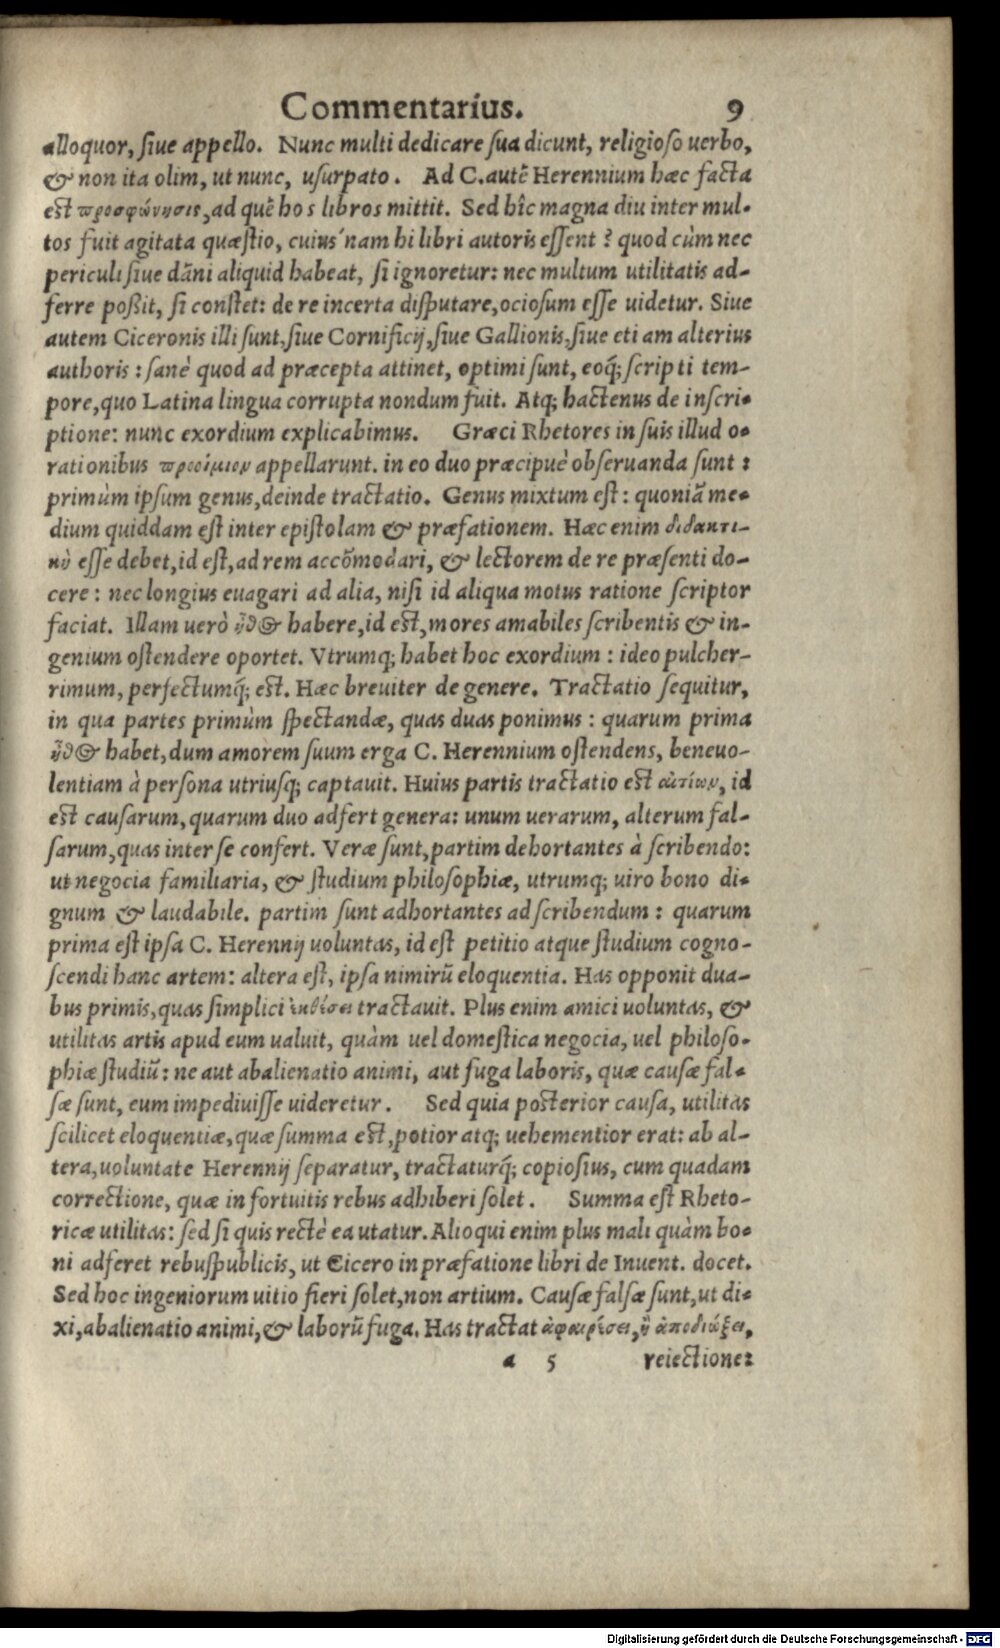 Commentarius. 9
alloquor, siue appello. Nunc multi dedicare sua dicunt, religioso uerbo,
& non ita olim, ut nunc, usurpato. Ad C. autē Herennium hæc facta
est προσφώνησις, ad quē hos libros mittit. Sed hîc magna diu inter mul-
tos fuit agitata quæstio, cuius'nam hi libri autoris essent? quod cùm nec
periculi siue dāni aliquid habeat, si ignoretur: nec multum utilitatis ad-
ferre poßit, si constet: de re incerta disputare, ociosum esse uidetur. Siue
autem Ciceronis illi sunt, siue Cornificij, siue Gallionis, siue eti am alterius
authoris: sanè quod ad præcepta attinet, optimi sunt, eoq́; scrip ti tem-
pore, quo Latina lingua corrupta nondum fuit. Atq; hactenus de inscri-
ptione: nunc exordium explicabimus. Græci Rhetores in suis illud o-
rationibus προοίμιον appellarunt. in eo duo præcipuè obseruanda sunt:
primùm ipsum genus, deinde tractatio. Genus mixtum est: quoniā me-
dium quiddam est inter epistolam & præfationem. Hæc enim διδακτι-
κὴ esse debet, id est, ad rem accōmodari, & lectorem de re præsenti do-
cere: nec longius euagari ad alia, nisi id aliqua motus ratione scriptor
faciat. Illam uerò ἦθος habere, id est, mores amabiles scribentis & in-
genium ostendere oportet. Vtrumq; habet hoc exordium: ideo pulcher-
rimum, perfectumq́; est. Hæc breuiter de genere. Tractatio sequitur,
in qua partes primùm spectandæ, quas duas ponimus: quarum prima
ἦθος habet, dum amorem suum erga C. Herennium ostendens, beneuo-
lentiam à persona utriusq; captauit. Huius partis tractatio est αἰτίων, id
est causarum, quarum duo adfert genera: unum uerarum, alterum fal-
sarum, quas inter se confert. Veræ sunt, partim dehortantes à scribendo:
ut negocia familiaria, & studium philosophiæ, utrumq; uiro bono di-
gnum & laudabile. partim sunt adhortantes ad scribendum: quarum
prima est ipsa C. Herennij uoluntas, id est petitio atque studium cogno-
scendi hanc artem: altera est, ipsa nimirū eloquentia. Has opponit dua-
bus primis, quas simplici ἐκθέσει tractauit. Plus enim amici uoluntas, &
utilitas artis apud eum ualuit, quàm uel domestica negocia, uel philoso-
phiæ studiū: ne aut abalienatio animi, aut fuga laboris, quæ causæ fal-
sæ sunt, eum impediuisse uideretur. Sed quia posterior causa, utilitas
scilicet eloquentiæ, quæ summa est, potior atq; uehementior erat: ab al-
tera, uoluntate Herennij separatur, tractaturq́; copiosius, cum quadam
correctione, quæ in fortuitis rebus adhiberi solet. Summa est Rheto-
ricæ utilitas: sed si quis rectè ea utatur. Alioqui enim plus mali quàm bo-
ni adferet rebuspublicis, ut Cicero in præfatione libri de Inuent. docet.
Sed hoc ingeniorum uitio fieri solet, non artium. Causæ falsæ sunt, ut di-
xi, abalienatio animi, & laborū fuga. Has tractat ἀφαιρέσει, ἢ ἀποδιώξει,
a 5 reiectione: